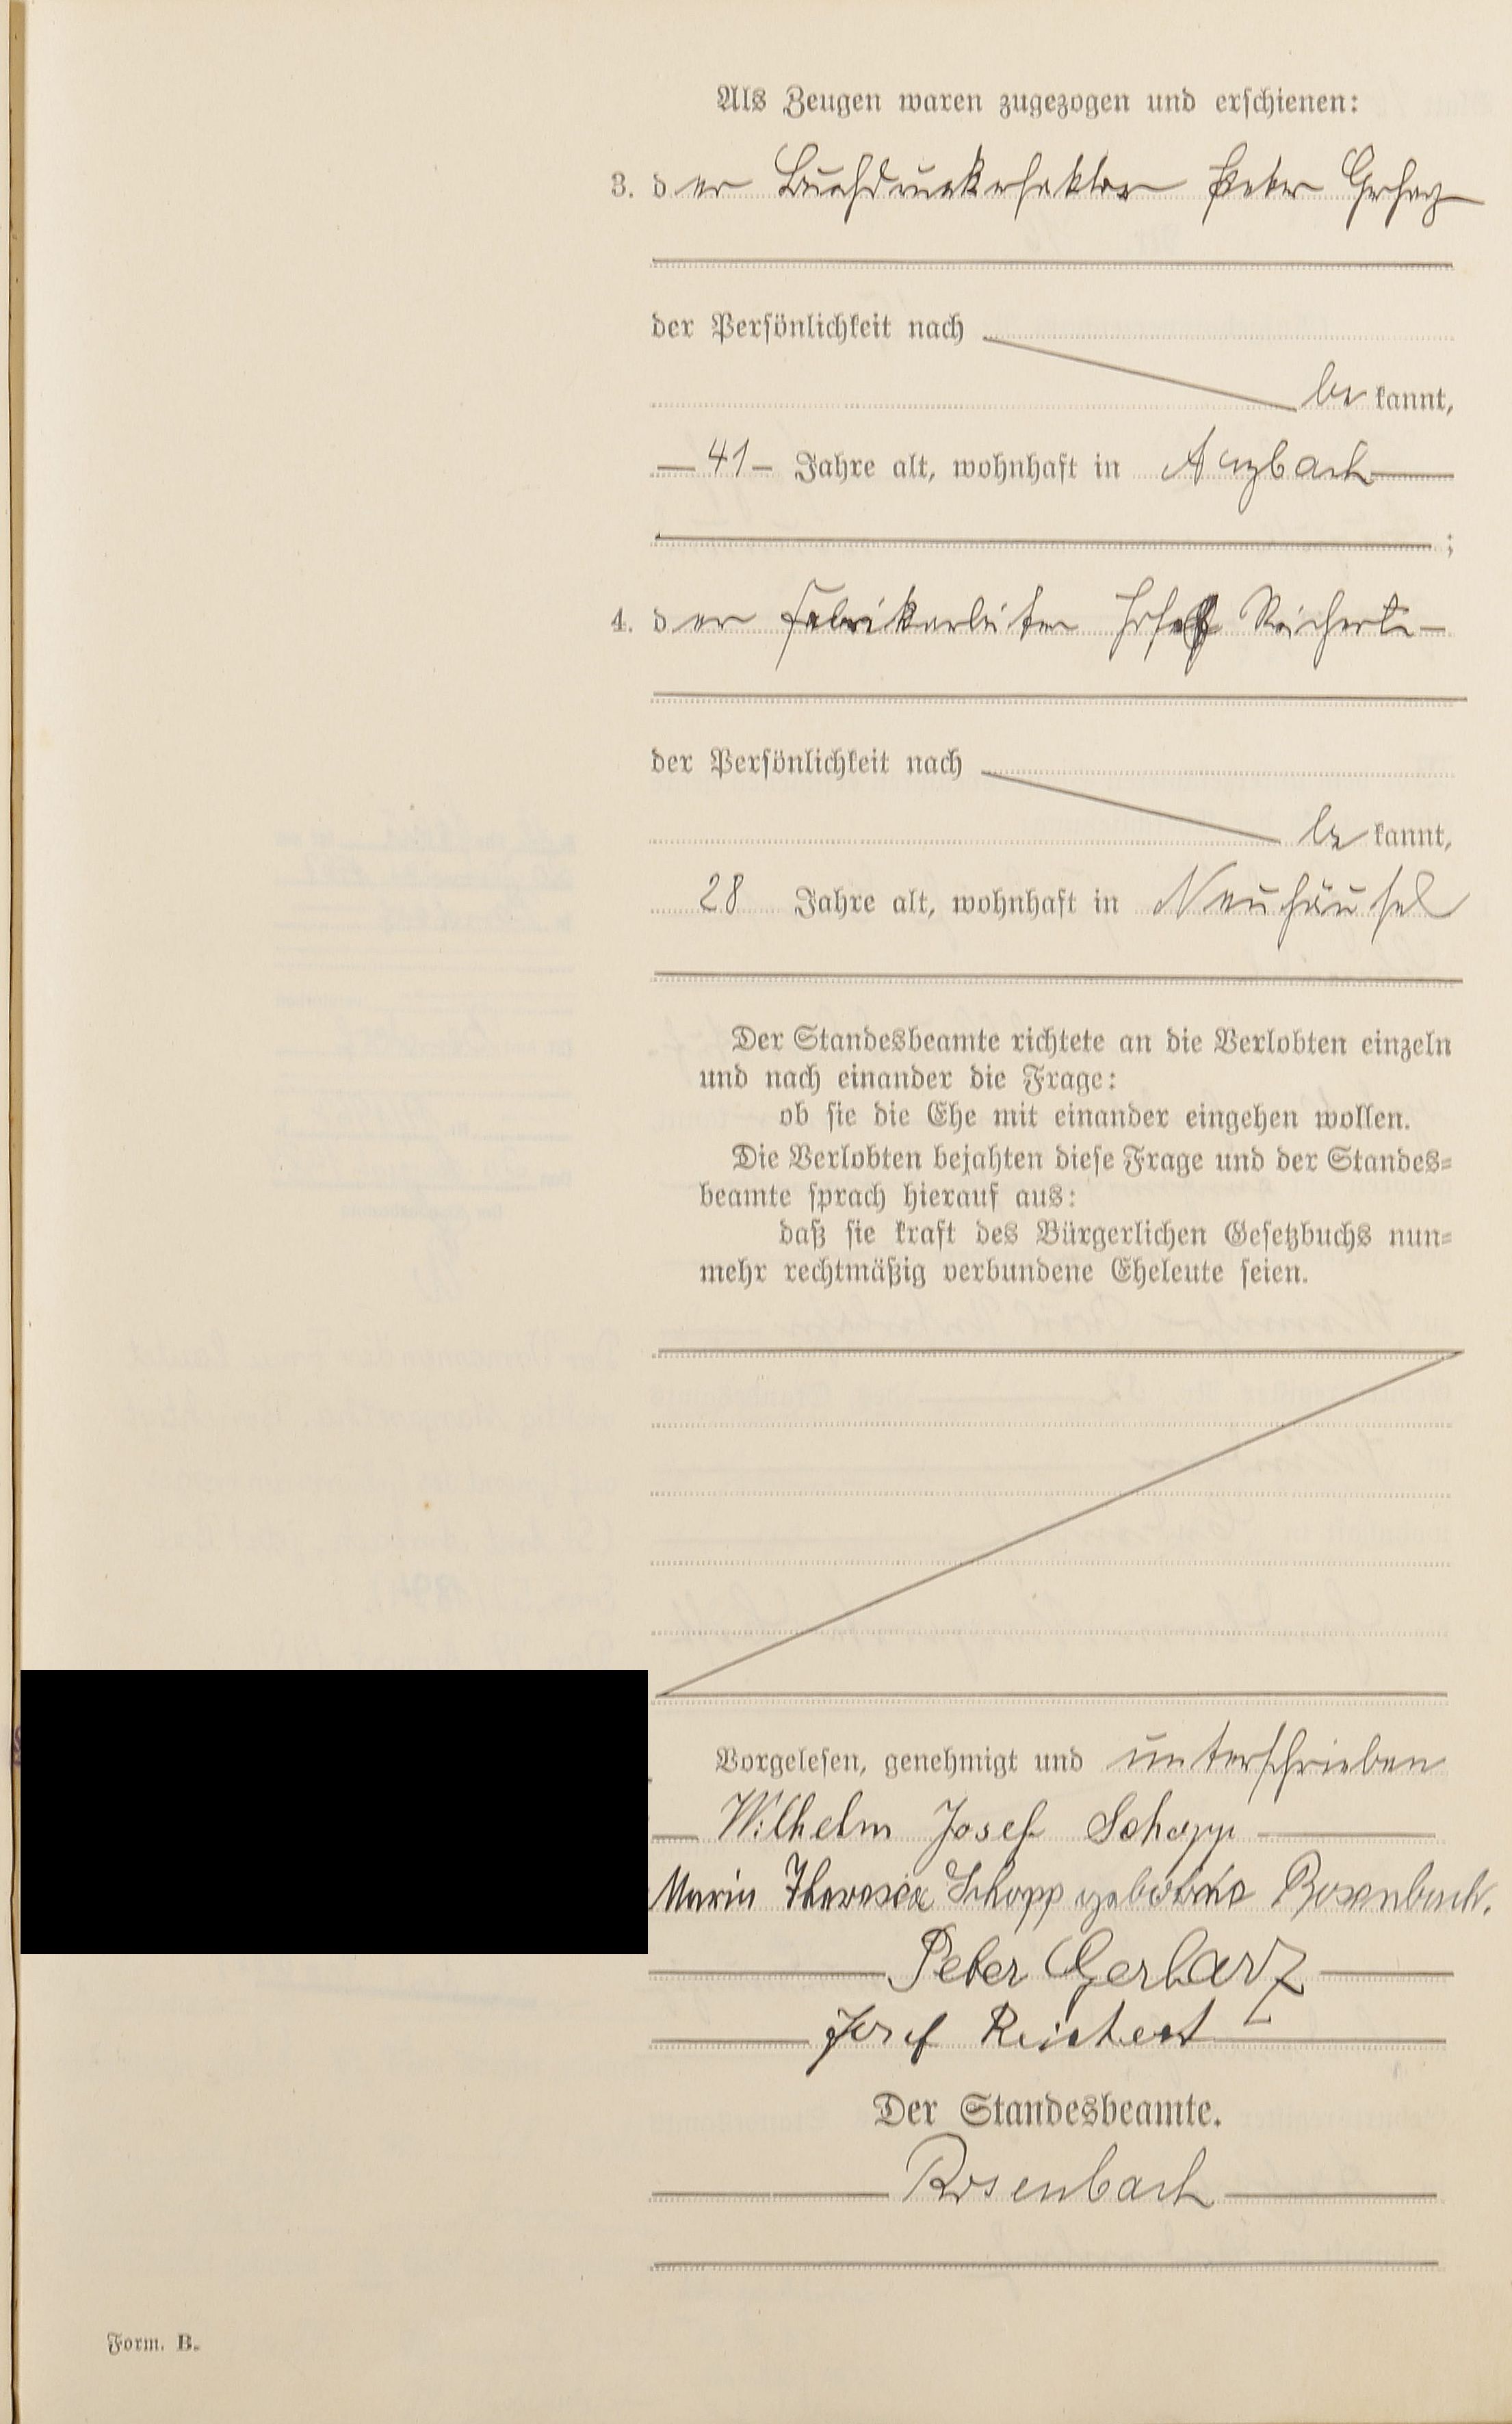 Als Zeugen waren zugezogen und erschienen:
3. der Buchdruckerfaktor Peter Gerharz
der Persönlichkeit nach
bekannt,
41 Jahre alt, wohnhaft in Arzbach
;
4. der Fabrikarbeiter Josef Reichert
der Persönlichkeit nach
bekannt,
28 Jahre alt, wohnhaft in Neuhäusel
Der Standesbeamte richtete an die Verlobten einzeln
und nach einander die Frage:
ob sie die Ehe mit einander eingehen wollen.
Die Verlobten bejahten diese Frage und der Standes=
beamte sprach hierauf aus:
daß sie kraft des Bürgerlichen Gesetzbuchs nun=
mehr rechtmäßig verbundene Eheleute seien.
Vorgelesen, genehmigt und unterschrieben
Wilhelm Josef Schopp
Maria Theresia Schopp geborene Rosenbach.
Peter Gerharz
Josef Reichert
Der Standesbeamte.
Rosenbach
Form. B.